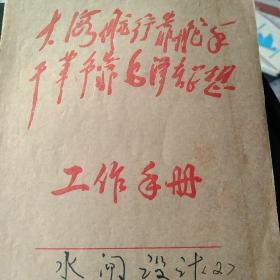 大海航行靠舵手
干革命靠毛泽东思想
工作手册
水闸设计(2)